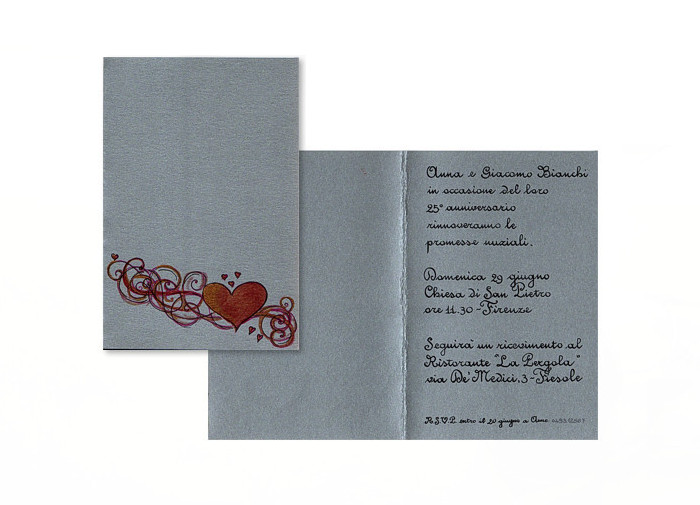 Anna e Giacomo Bianchi
in occasione del loro
25° anniversario
rinnoveranno le
promesse nuziali.
Domenica 29 giugno
Chiesa di San Pietro
ore 11.30 - Firenze
Seguirà un ricevimento al
Ristorante "La Pergola"
via De' Medici, 3 - Fiesole
R.S.V.P. entro il 20 giugno a Anna